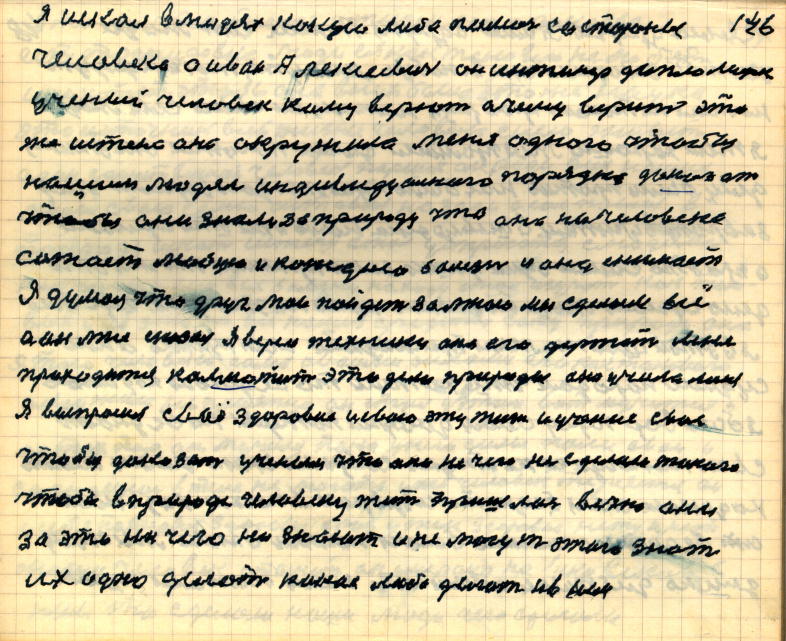 Я искал в людях какую либо помощь со стороны 146
человека а иван Алексеевич он инжинер дипломник
ученый человек кому верют а чему верит это
же истена она окружила меня одного чтобы
нашим людям индивидуалного порядка доказат
чтобы они знали за природу что она на человека
сажает любую и каждую болезн и она снимает
Я думал что друг мой пойдет за мною мы сделаем всё
а он мне сказал Я верю техники она его держит мене
приходится это дело природы она учила меня
Я выпросил своё здоровие и свою эту жизн и учение свое
чтобы доказат ученым что они не чего не сделали такого
чтобы в природе человеку жит пришлос вечно они
за это не чего не знают и не могут этого знат
их одно делот какое либо дело из нея